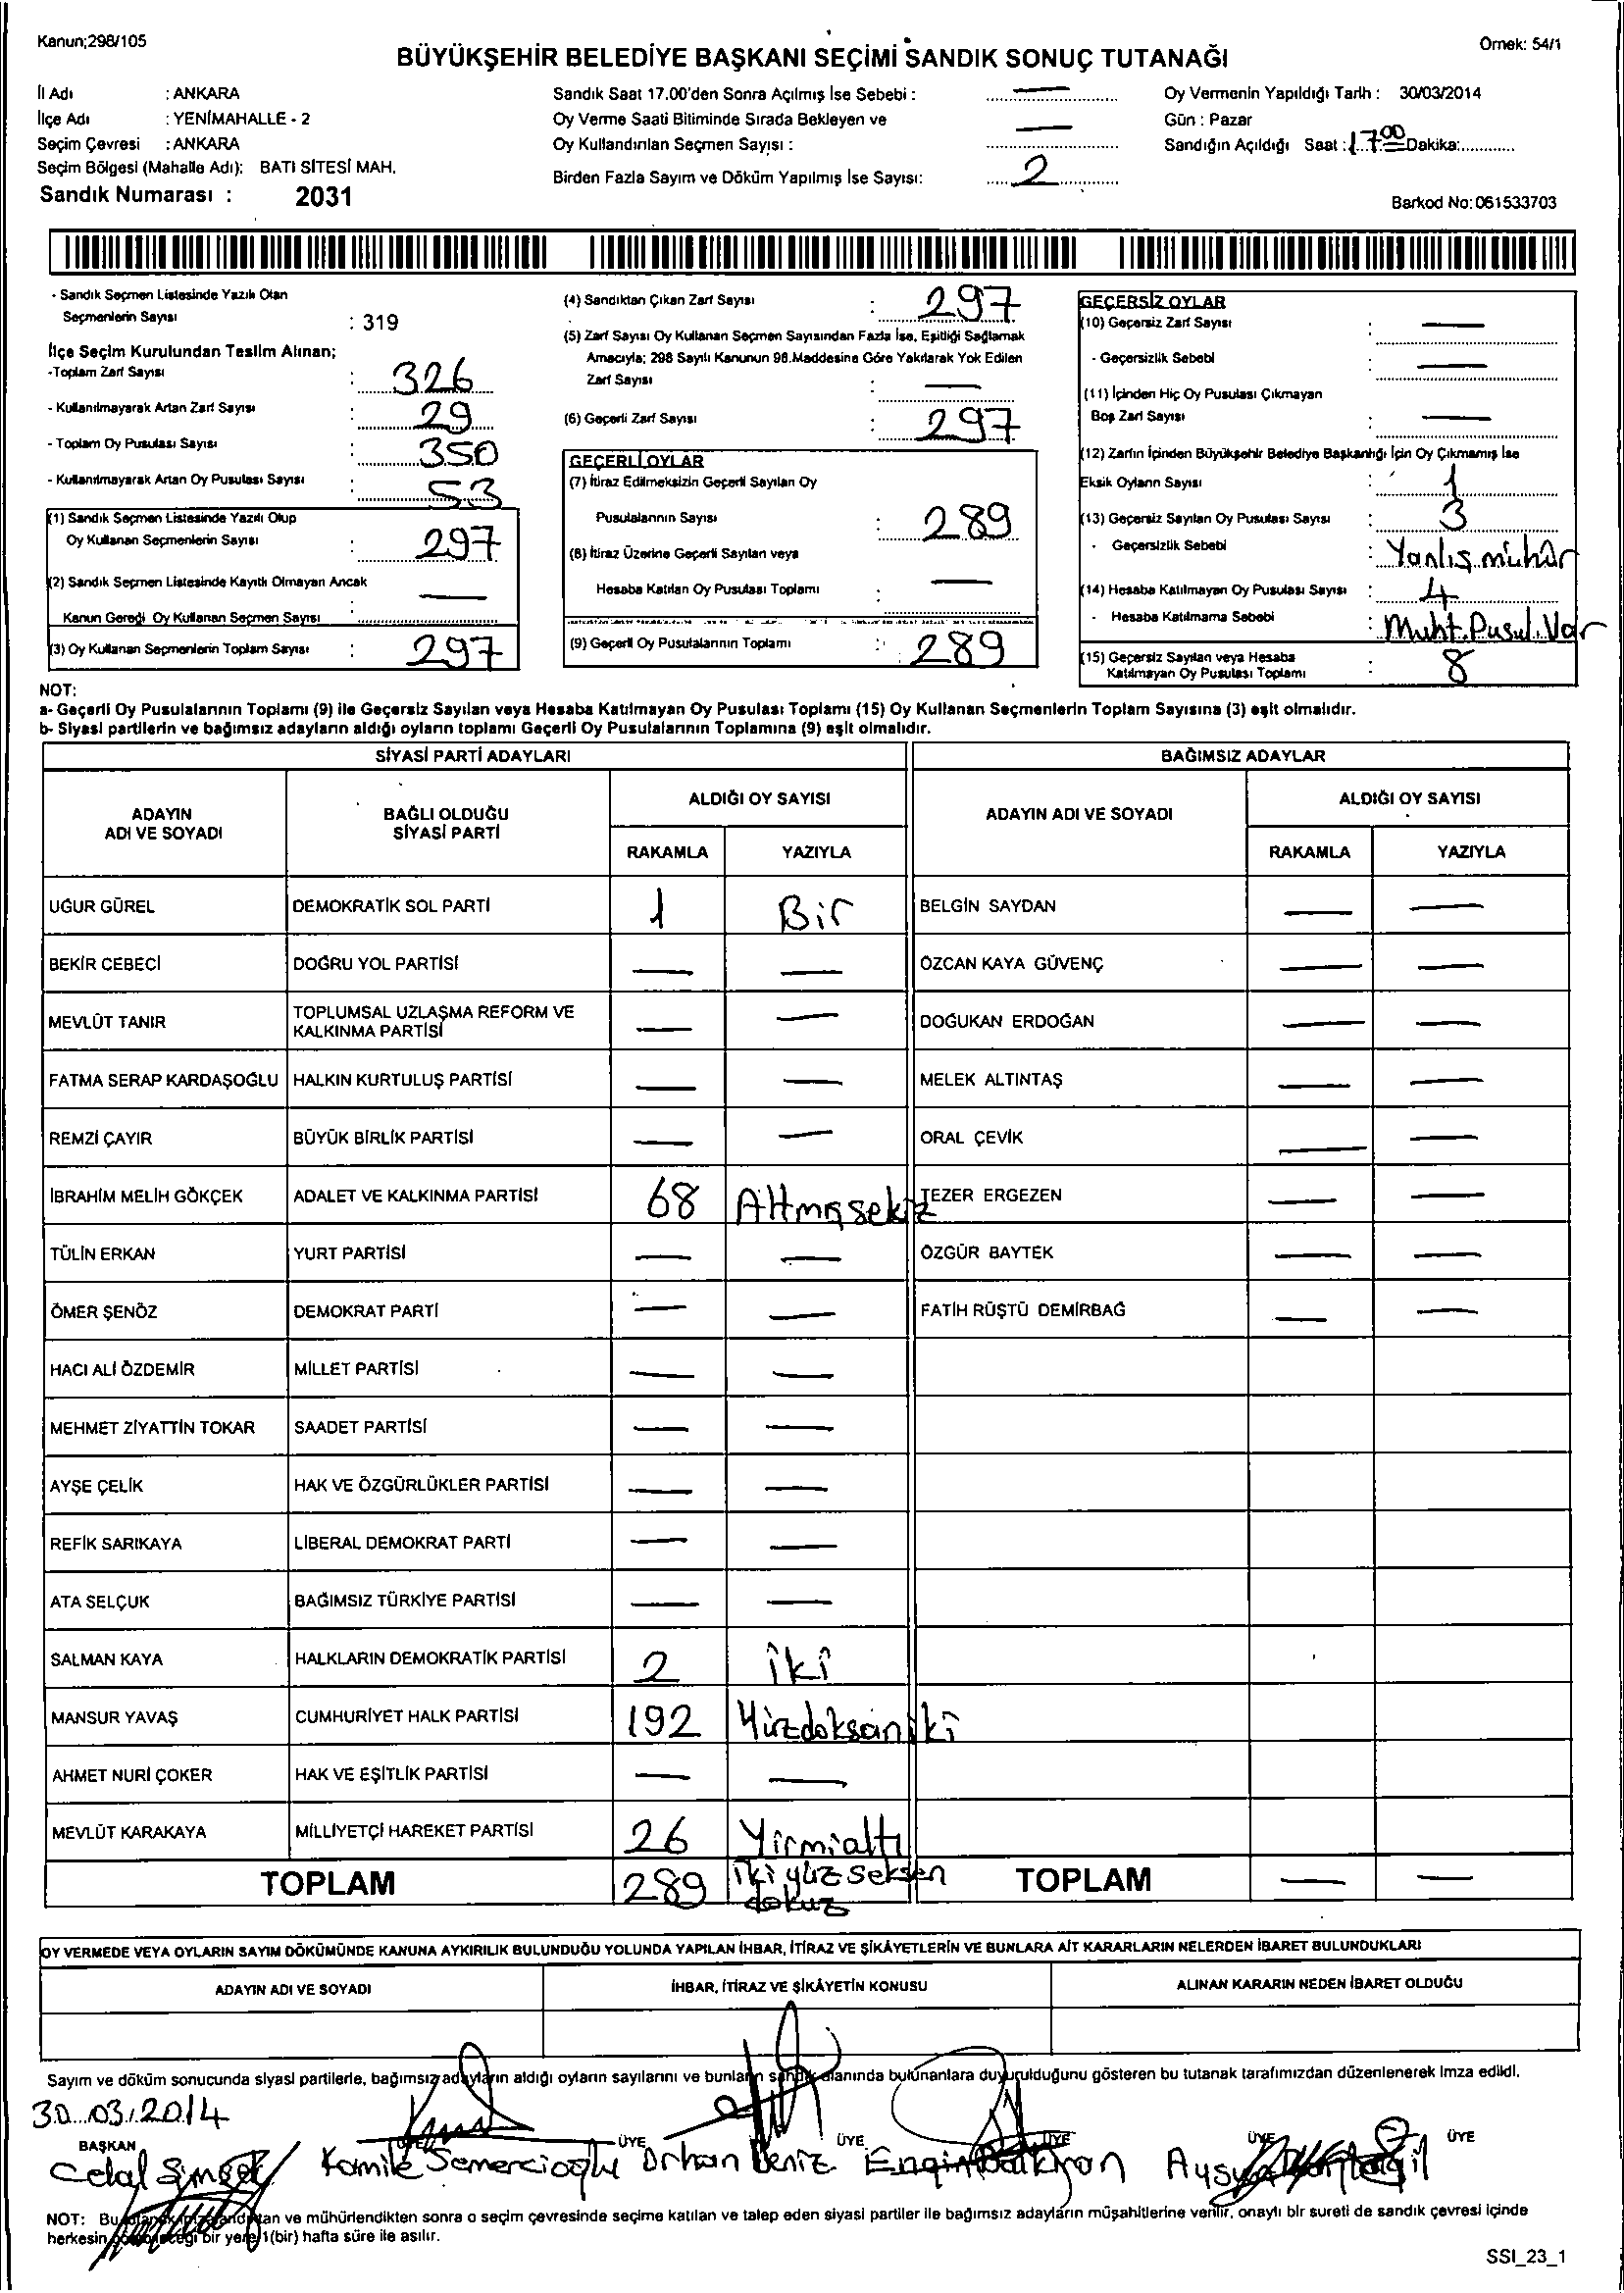 Kanun;298/105
Örnek: 54/1
BÜYÜKŞEHİR BELEDİYE BAŞKANI SEÇİMİ SANDIK SONUÇ TUTANAĞI
İl Adı : ANKARA
İlçe Adı : YENİMAHALLE - 2
Seçim Çevresi : ANKARA
Seçim Bölgesi (Mahalle Adı): BATI SİTESİ MAH.
Sandık Numarası : 2031
Sandık Saat 17.00'den Sonra Açılmış İse Sebebi : —
Oy Verme Saati Bitiminde Sırada Bekleyen ve
Oy Kullandırılan Seçmen Sayısı : —
Birden Fazla Sayım ve Döküm Yapılmış İse Sayısı: 2
Oy Vermenin Yapıldığı Tarih : 30/03/2014
Gün : Pazar
Sandığın Açıldığı Saat : 17.00 Dakika:............
Barkod No: 061533703
- Sandık Seçmen Listesinde Yazılı Olan
Seçmenlerin Sayısı : 319
İlçe Seçim Kurulundan Teslim Alınan;
-Toplam Zarf Sayısı : 326
- Kullanılmayarak Artan Zarf Sayısı : 29
- Toplam Oy Pusulası Sayısı : 350
- Kullanılmayarak Artan Oy Pusulası Sayısı : 53
(1) Sandık Seçmen Listesinde Yazılı Olup
Oy Kullanan Seçmenlerin Sayısı : 297
(2) Sandık Seçmen Listesinde Kayıtlı Olmayan Ancak
Kanun Gereği Oy Kullanan Seçmen Sayısı : —
(3) Oy Kullanan Seçmenlerin Toplam Sayısı : 297
(4) Sandıktan Çıkan Zarf Sayısı : 297
(5) Zarf Sayısı Oy Kullanan Seçmen Sayısından Fazla İse, Eşitliği Sağlamak
Amacıyla; 298 Sayılı Kanunun 98.Maddesine Göre Yakılarak Yok Edilen
Zarf Sayısı : —
(6) Geçerli Zarf Sayısı : 297
GEÇERLİ OYLAR
(7) İtiraz Edilmeksizin Geçerli Sayılan Oy
Pusulalarının Sayısı : 289
(8) İtiraz Üzerine Geçerli Sayılan veya
Hesaba Katılan Oy Pusulası Toplamı : —
(9) Geçerli Oy Pusulalarının Toplamı : 289
GEÇERSİZ OYLAR
(10) Geçersiz Zarf Sayısı : —
- Geçersizlik Sebebi : —
(11) İçinden Hiç Oy Pusulası Çıkmayan
Boş Zarf Sayısı : —
(12) Zarfın İçinden Büyükşehir Belediye Başkanlığı İçin Oy Çıkmamış İse
Eksik Oyların Sayısı : 1
(13) Geçersiz Sayılan Oy Pusulası Sayısı : 3
- Geçersizlik Sebebi : Yanlış mühür
(14) Hesaba Katılmayan Oy Pusulası Sayısı : 4
- Hesaba Katılmama Sebebi : Muht. Pusul. Var
(15) Geçersiz Sayılan veya Hesaba
Katılmayan Oy Pusulası Toplamı : 8
NOT:
a- Geçerli Oy Pusulalarının Toplamı (9) ile Geçersiz Sayılan veya Hesaba Katılmayan Oy Pusulası Toplamı (15) Oy Kullanan Seçmenlerin Toplam Sayısına (3) eşit olmalıdır.
b- Siyasi partilerin ve bağımsız adayların aldığı oyların toplamı Geçerli Oy Pusulalarının Toplamına (9) eşit olmalıdır.
SİYASİ PARTİ ADAYLARI BAĞIMSIZ ADAYLAR
ADAYIN ADI VE SOYADI BAĞLI OLDUĞU SİYASİ PARTİ ALDIĞI OY SAYISI ADAYIN ADI VE SOYADI ALDIĞI OY SAYISI
RAKAMLA YAZIYLA RAKAMLA YAZIYLA
UĞUR GÜREL DEMOKRATİK SOL PARTİ 1 Bir BELGİN SAYDAN — —
BEKİR CEBECİ DOĞRU YOL PARTİSİ — — ÖZCAN KAYA GÜVENÇ — —
MEVLÜT TANIR TOPLUMSAL UZLAŞMA REFORM VE KALKINMA PARTİSİ — — DOĞUKAN ERDOĞAN — —
FATMA SERAP KARDAŞOĞLU HALKIN KURTULUŞ PARTİSİ — — MELEK ALTINTAŞ — —
REMZİ ÇAYIR BÜYÜK BİRLİK PARTİSİ — — ORAL ÇEVİK — —
İBRAHİM MELİH GÖKÇEK ADALET VE KALKINMA PARTİSİ 68 Altmışsekiz TEZER ERGEZEN — —
TÜLİN ERKAN YURT PARTİSİ — — ÖZGÜR BAYTEK — —
ÖMER ŞENÖZ DEMOKRAT PARTİ — — FATİH RÜŞTÜ DEMİRBAĞ — —
HACI ALİ ÖZDEMİR MİLLET PARTİSİ — —
MEHMET ZİYATTİN TOKAR SAADET PARTİSİ — —
AYŞE ÇELİK HAK VE ÖZGÜRLÜKLER PARTİSİ — —
REFİK SARIKAYA LİBERAL DEMOKRAT PARTİ — —
ATA SELÇUK BAĞIMSIZ TÜRKİYE PARTİSİ — —
SALMAN KAYA HALKLARIN DEMOKRATİK PARTİSİ 2 iki
MANSUR YAVAŞ CUMHURİYET HALK PARTİSİ 192 Yüzdoksaniki
AHMET NURİ ÇOKER HAK VE EŞİTLİK PARTİSİ — —
MEVLÜT KARAKAYA MİLLİYETÇİ HAREKET PARTİSİ 26 Yirmialtı
TOPLAM 289 ikiyüzseksen dokuz TOPLAM — —
OY VERMEDE VEYA OYLARIN SAYIM DÖKÜMÜNDE KANUNA AYKIRILIK BULUNDUĞU YOLUNDA YAPILAN İHBAR, İTİRAZ VE ŞİKÂYETLERİN VE BUNLARA AİT KARARLARIN NELERDEN İBARET BULUNDUKLARI
ADAYIN ADI VE SOYADI İHBAR, İTİRAZ VE ŞİKÂYETİN KONUSU ALINAN KARARIN NEDEN İBARET OLDUĞU
Sayım ve döküm sonucunda siyasi partilerle, bağımsız adayların aldığı oyların sayılarını ve bunların sandık alanında bulunanlara duyurulduğunu gösteren bu tutanak tarafımızdan düzenlenerek imza edildi.
30.03.2014
BAŞKAN ÜYE ÜYE ÜYE ÜYE ÜYE ÜYE
Celal Şimşek Kamile Semercioğlu Orhan Deniz Engin
NOT: Bu tutanak imzalandıktan ve mühürlendikten sonra o seçim çevresinde seçime katılan ve talep eden siyasi partiler ile bağımsız adayların müşahitlerine verilir, onaylı bir sureti de sandık çevresi içinde
herkesin görebileceği bir yere 1(bir) hafta süre ile asılır.
SSI_23_1